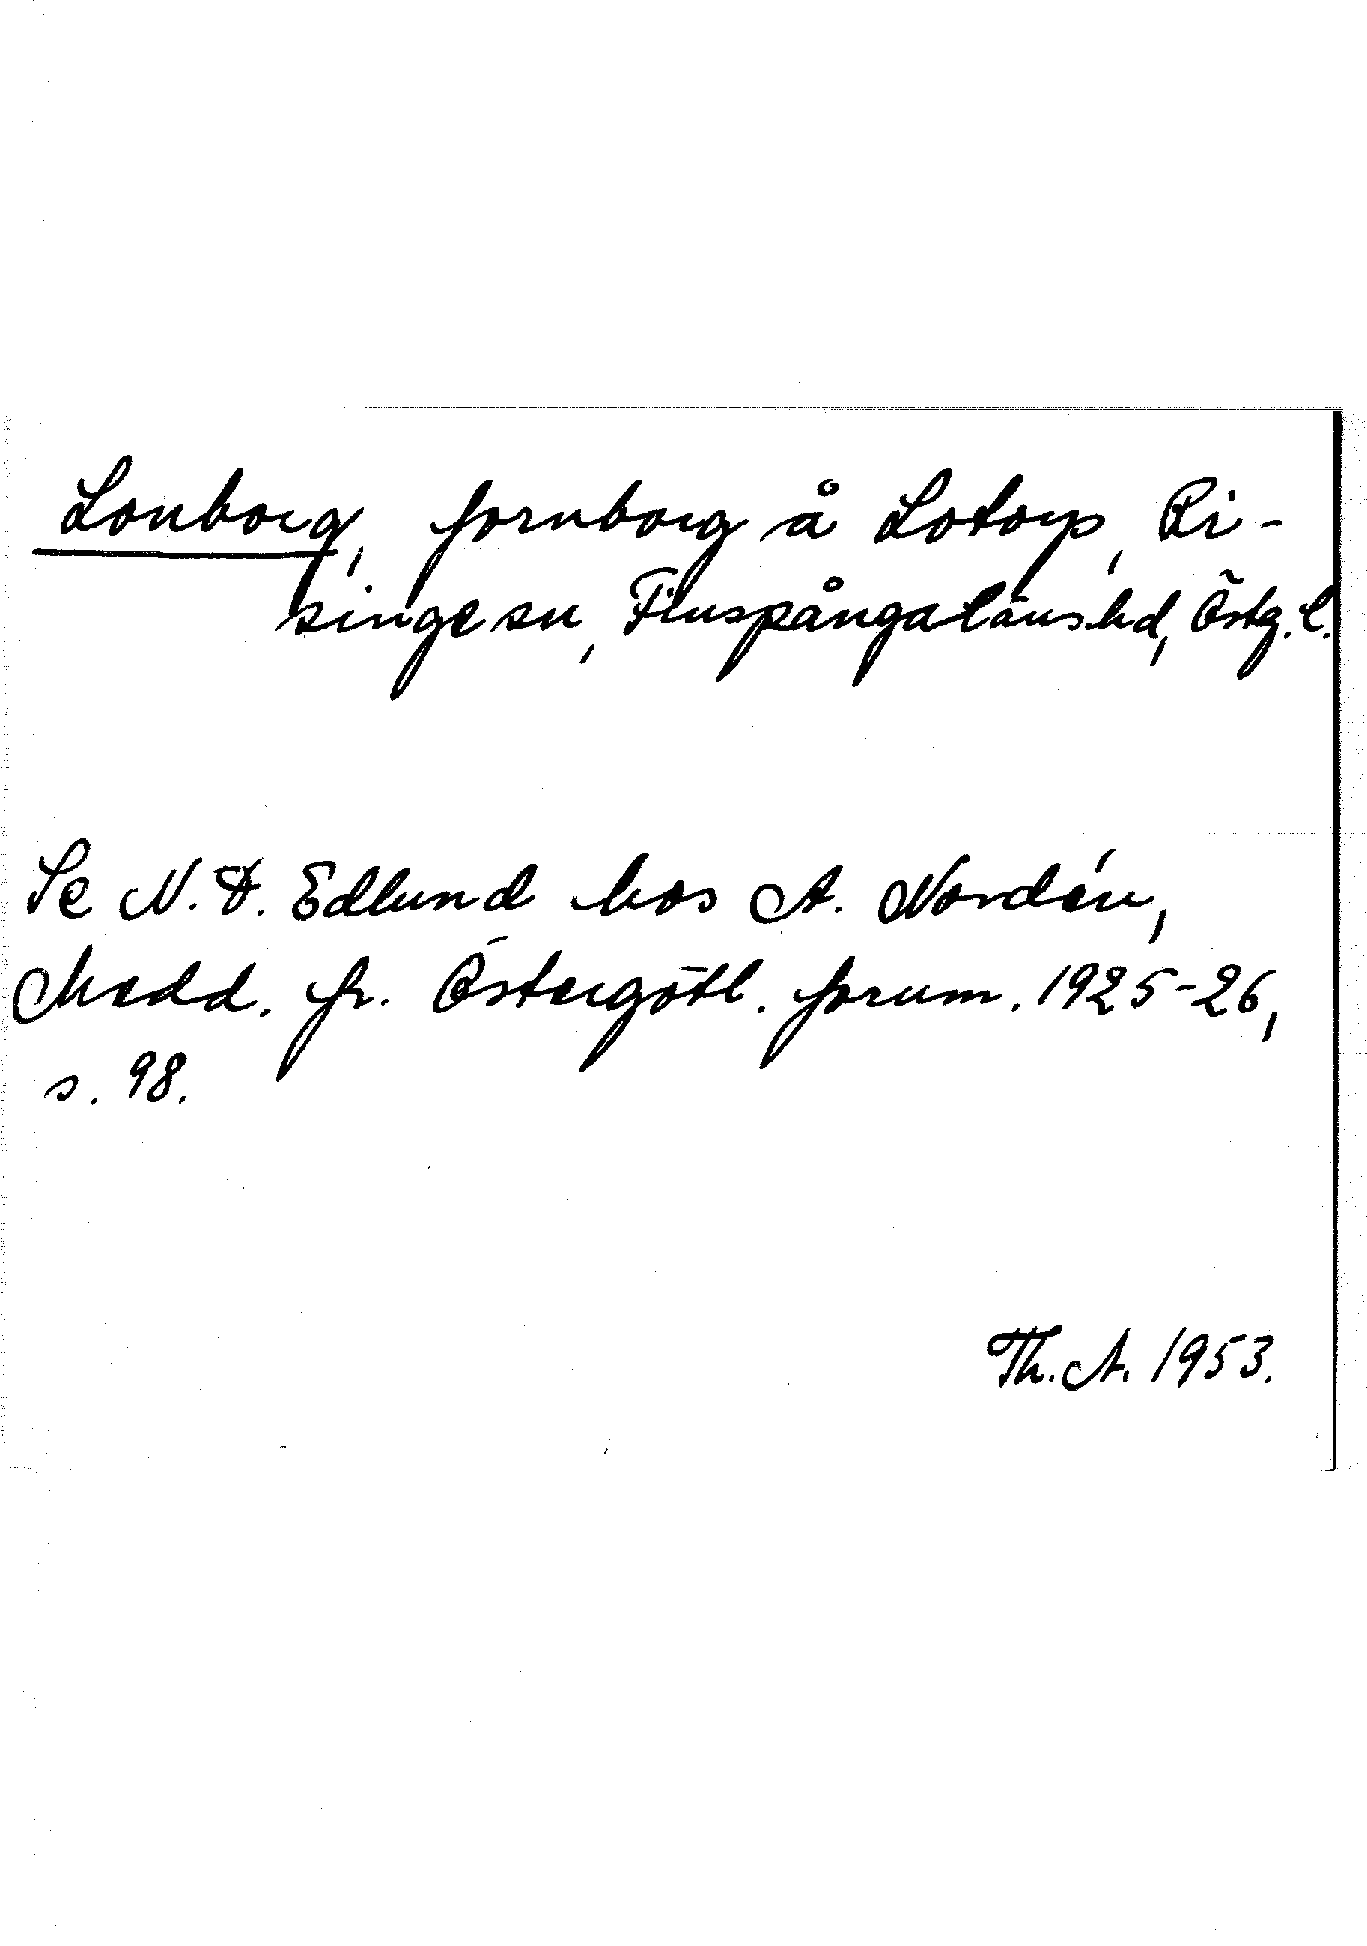 Lonborg, fornborg å Lotorp, Ri-
singe sn, Finspångaläns hd, Östg. l.
Se N. D. Edlund hos A. Nordén,
Medd. fr. Östergötl. fornm. 1925-26,
s. 98.
Th. A. 1953.